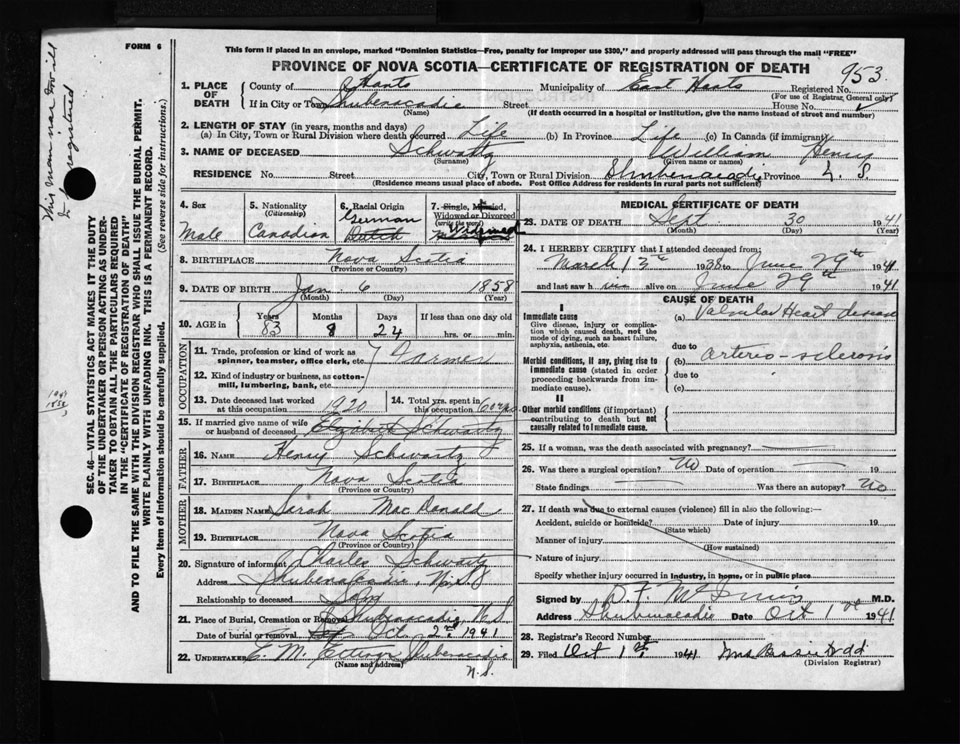 FORM 6
This form if placed in an envelope, marked "Dominion Statistics—Free, penalty for improper use $300," and properly addressed will pass through the mail "FREE"
PROVINCE OF NOVA SCOTIA—CERTIFICATE OF REGISTRATION OF DEATH
953
1. PLACE OF DEATH
County of Hants Municipality of East Hants Registered No.
(For use of Registrar General only)
If in City or Town Shubenacadie Street House No.
(Name) (If death occurred in a hospital or institution, give the name instead of street and number)
2. LENGTH OF STAY (in years, months and days)
(a) In City, Town or Rural Division where death occurred Life (b) In Province Life (c) In Canada (if immigrant)
3. NAME OF DECEASED Schwartz William Henry
(Surname) (Given name or names)
RESIDENCE No. Street City, Town or Rural Division Shubenacadie Province N. S
(Residence means usual place of abode. Post Office Address for residents in rural parts not sufficient)
4. Sex
Male
5. Nationality
(Citizenship)
Canadian
6. Racial Origin
German
Dutch
7. Single, Married, Widowed or Divorced
(write the word)
Widowed
8. BIRTHPLACE Nova Scotia
(Province or Country)
9. DATE OF BIRTH Jan 6 1858
(Month) (Day) (Year)
10. AGE in Years Months Days If less than one day old
83 8 24 hrs. or min.
OCCUPATION
11. Trade, profession or kind of work as spinner, teamster, office clerk, etc. Farmer
12. Kind of industry or business, as cotton-mill, lumbering, bank, etc.
13. Date deceased last worked at this occupation 1920
14. Total yrs. spent in this occupation 60 yrs
15. If married give name of wife or husband of deceased Elizabeth Schwartz
FATHER
16. NAME Henry Schwartz
17. BIRTHPLACE Nova Scotia
(Province or Country)
MOTHER
18. MAIDEN NAME Sarah Mac Donald
19. BIRTHPLACE Nova Scotia
(Province or Country)
20. Signature of informant Charles Schwartz
Address Shubenacadie, N.S.
Relationship to deceased Son
21. Place of Burial, Cremation or Removal Shubenacadie, N.S
Date of burial or removal Oct. 2nd 1941
22. UNDERTAKER E. M. Ettinger Shubenacadie
(Name and address)
N.S.
MEDICAL CERTIFICATE OF DEATH
23. DATE OF DEATH Sept 30 1941
(Month) (Day) (Year)
24. I HEREBY CERTIFY that I attended deceased from:
March 13th 1938 to June 29th 1941
and last saw h im alive on June 29th 1941
CAUSE OF DEATH
I
Immediate cause
Give disease, injury or complication which caused death, not the mode of dying, such as heart failure, asphyxia, asthenia, etc.
(a) Valvular Heart disease
due to
Morbid conditions, if any, giving rise to immediate cause (stated in order of proceeding backwards from immediate cause)
(b) arterio-sclerosis
due to
(c)
II
Other morbid conditions (if important) contributing to death but not causally related to immediate cause
25. If a woman, was the death associated with pregnancy?
26. Was there a surgical operation? No Date of operation 19
State findings Was there an autopsy? No
27. If death was due to external causes (violence) fill in also the following:—
Accident, suicide or homicide? Date of injury 19
(State which)
Manner of injury
(How sustained)
Nature of injury
Specify whether injury occurred in industry, in home, or in public place
Signed by D. F. McInnis M.D.
Address Shubenacadie Date Oct 1st 1941
28. Registrar's Record Number
29. Filed Oct 1st 1941 Mrs Bessie Dodd
(Division Registrar)
This man's
registered
SEC. 46—VITAL STATISTICS ACT MAKES IT THE DUTY
OF THE UNDERTAKER OR PERSON ACTING AS UNDER-
TAKER TO OBTAIN ALL THE PARTICULARS REQUIRED
IN THE "CERTIFICATE OF REGISTRATION OF DEATH"
AND TO FILE THE SAME WITH THE DIVISION REGISTRAR WHO SHALL ISSUE THE BURIAL PERMIT.
(See reverse side for instructions.)
WRITE PLAINLY WITH UNFADING INK. THIS IS A PERMANENT RECORD.
Every item of information should be carefully supplied.
1941
1858